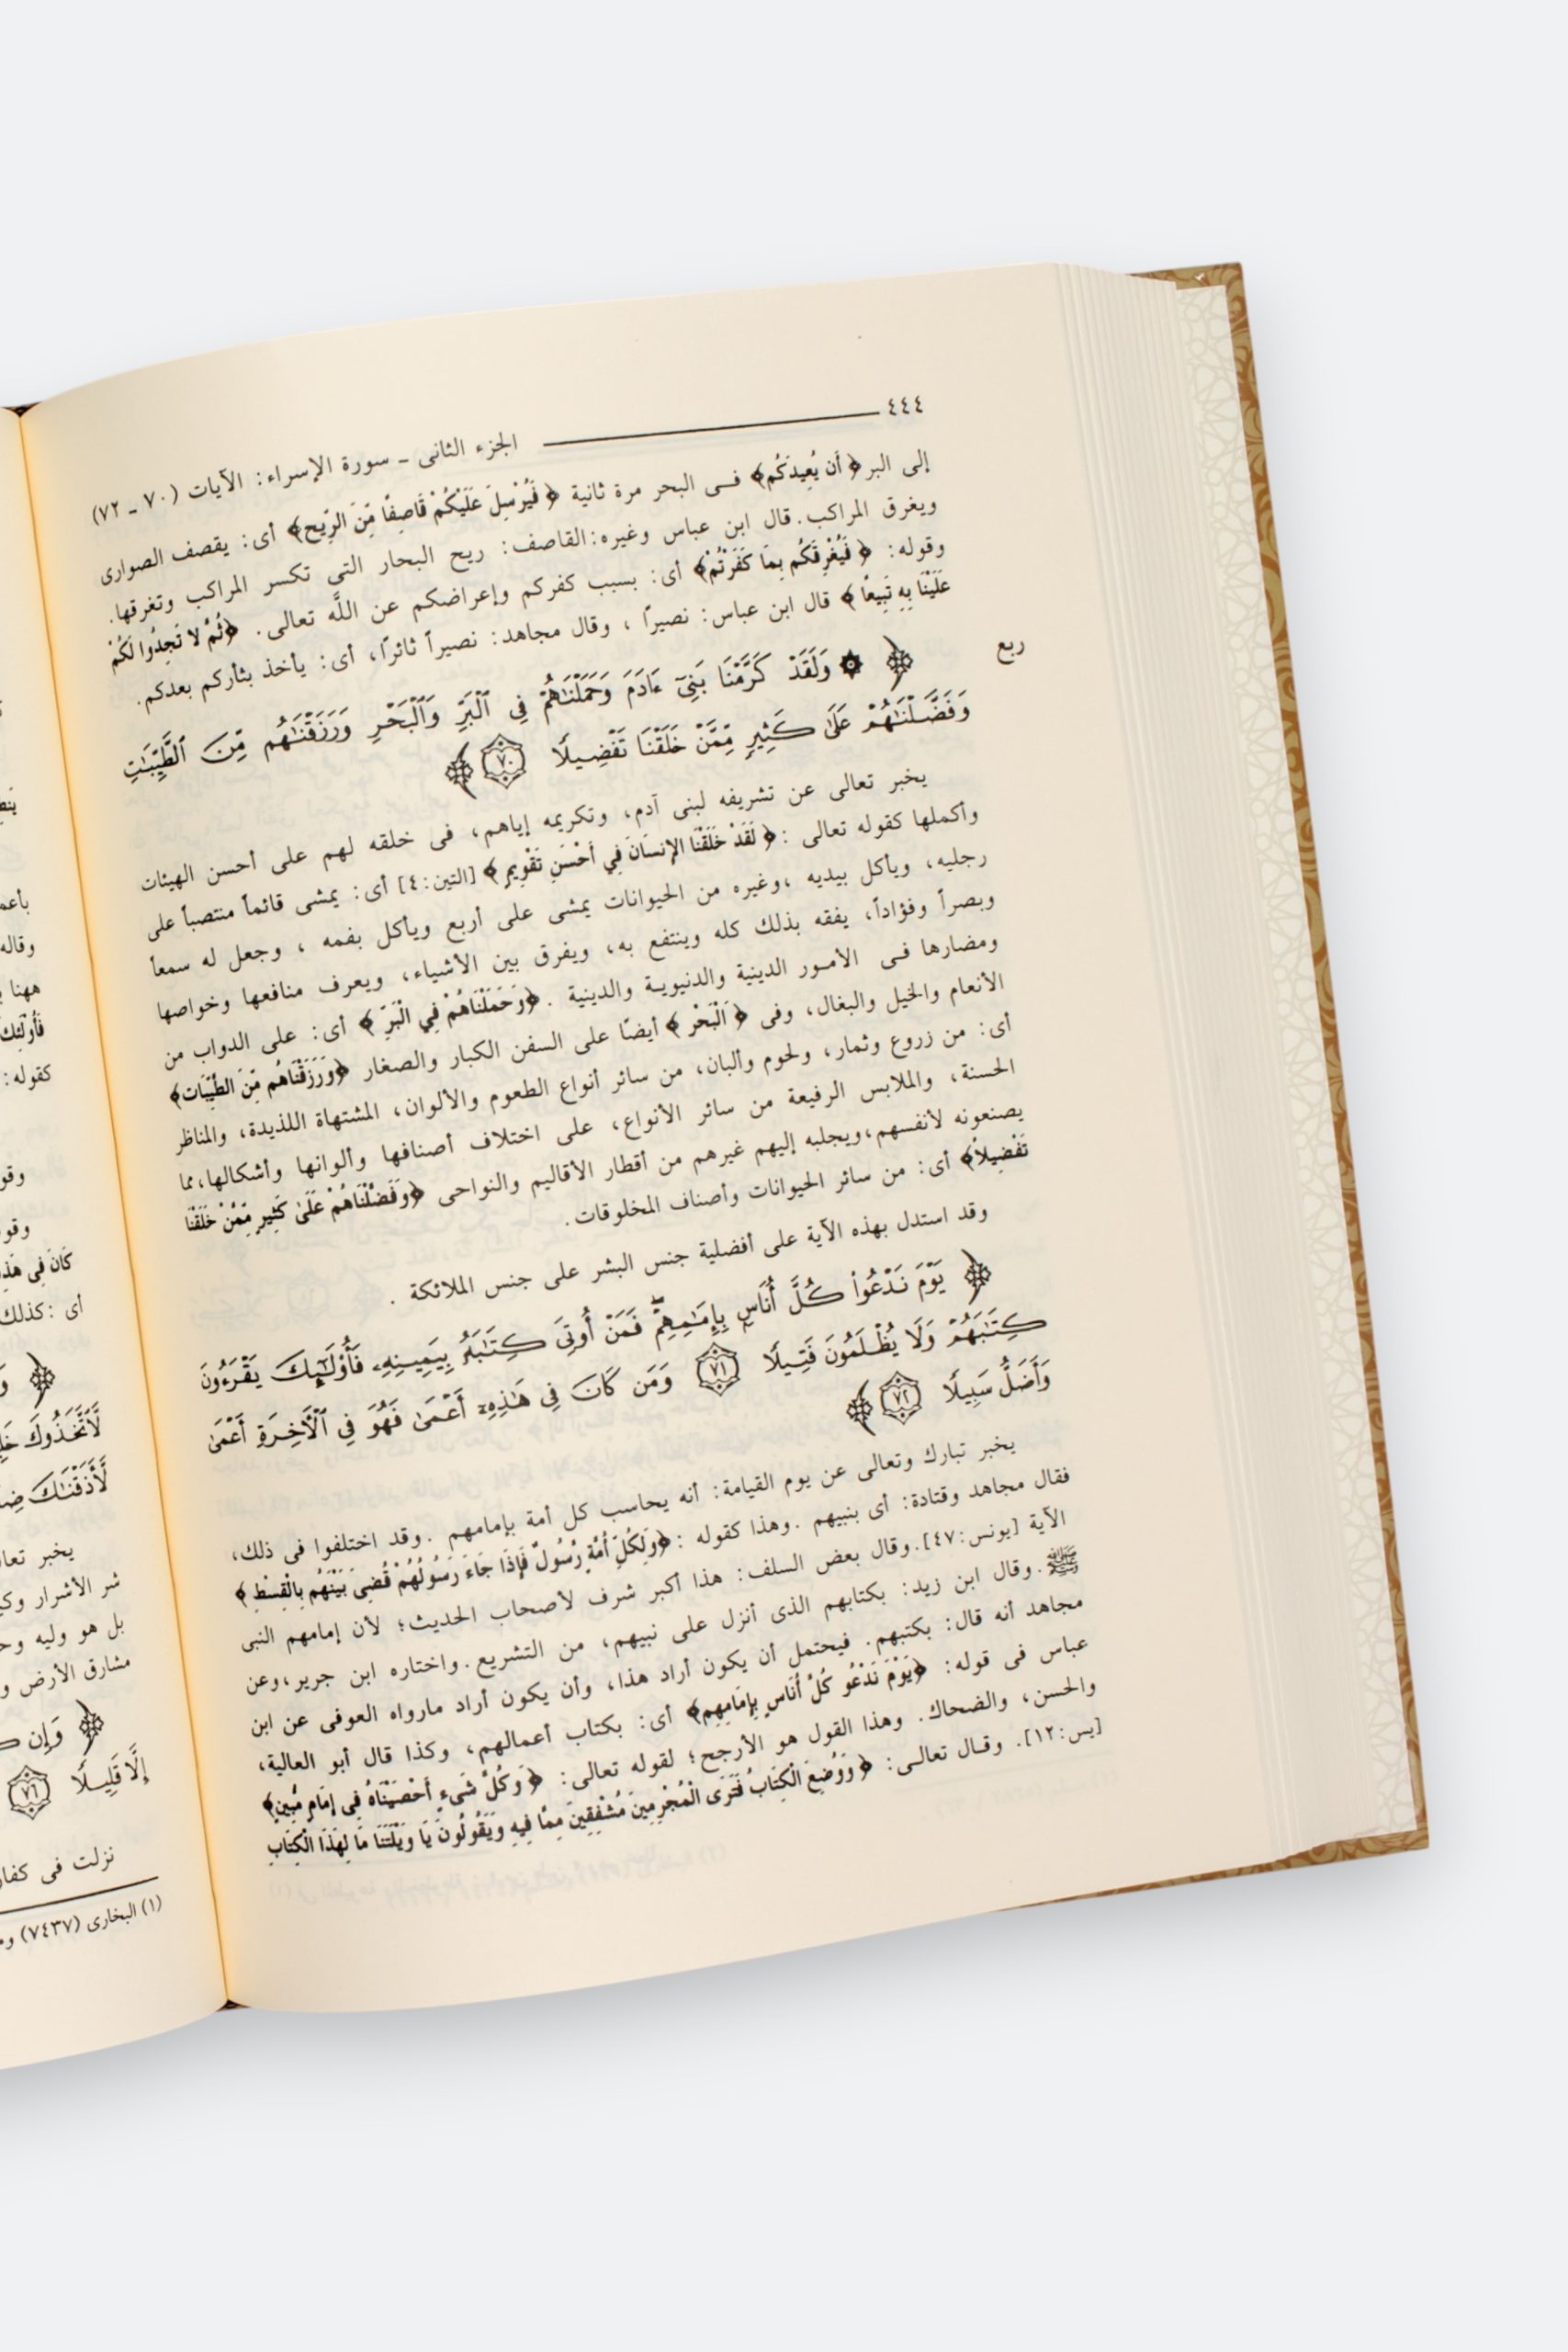 ٤٤٤ الجزء الثانى ـ سورة الإسراء: الآيات (٧٠ ـ ٧٢)
إلى البر ﴿ أَن يُعِيدَكُم﴾ فى البحر مرة ثانية ﴿ فَيُرْسِلَ عَلَيْكُمْ قَاصِفًا مِّنَ الرِّيحِ﴾ أى: يقصف الصوارى
ويغرق المراكب. قال ابن عباس وغيره: القاصف: ريح البحار التى تكسر المراكب وتغرقها.
وقوله: ﴿ فَيُغْرِقَكُم بِمَا كَفَرْتُمْ﴾ أى: بسبب كفركم وإعراضكم عن اللَّه تعالى. ﴿ثُمَّ لا تَجِدُوا لَكُمْ
عَلَيْنَا بِهِ تَبِيعًا ﴾ قال ابن عباس: نصيراً ، وقال مجاهد: نصيراً ثائراً، أى: يأخذ بثأركم بعدكم.
ربع
﴿ ۞ وَلَقَدْ كَرَّمْنَا بَنِىٓ ءَادَمَ وَحَمَلْنَٰهُمْ فِى ٱلْبَرِّ وَٱلْبَحْرِ وَرَزَقْنَٰهُم مِّنَ ٱلطَّيِّبَٰتِ
وَفَضَّلْنَٰهُمْ عَلَىٰ كَثِيرٍ مِّمَّنْ خَلَقْنَا تَفْضِيلًا ٧٠ ﴾
يخبر تعالى عن تشريفه لبنى آدم، وتكريمه إياهم، فى خلقه لهم على أحسن الهيئات
وأكملها كقوله تعالى :﴿ لَقَدْ خَلَقْنَا الإِنسَانَ فِي أَحْسَنِ تَقْوِيمٍ ﴾ [التين:٤] أى: يمشى قائماً منتصباً على
رجليه، ويأكل بيديه ،وغيره من الحيوانات يمشى على أربع ويأكل بفمه ، وجعل له سمعاً
وبصراً وفؤاداً، يفقه بذلك كله وينتفع به، ويفرق بين الأشياء، ويعرف منافعها وخواصها
ومضارها فى الأمور الدينية والدنيوية والدينية . ﴿وَحَمَلْنَاهُمْ فِي الْبَرِّ ﴾ أى: على الدواب من
الأنعام والخيل والبغال، وفى ﴿ الْبَحْرِ ﴾ أيضًا على السفن الكبار والصغار ﴿وَرَزَقْنَاهُم مِّنَ الطَّيِّبَاتِ﴾
أى: من زروع وثمار، ولحوم وألبان، من سائر أنواع الطعوم والألوان، المشتهاة اللذيذة، والمناظر
الحسنة، والملابس الرفيعة من سائر الأنواع، على اختلاف أصنافها وألوانها وأشكالها،مما
يصنعونه لأنفسهم،ويجلبه إليهم غيرهم من أقطار الأقاليم والنواحى ﴿وَفَضَّلْنَاهُمْ عَلَىٰ كَثِيرٍ مِّمَّنْ خَلَقْنَا
تَفْضِيلاً﴾ أى: من سائر الحيوانات وأصناف المخلوقات.
وقد استدل بهذه الآية على أفضلية جنس البشر على جنس الملائكة .
﴿ يَوْمَ نَدْعُوا۟ كُلَّ أُنَاسٍۭ بِإِمَٰمِهِمْ ۖ فَمَنْ أُوتِىَ كِتَٰبَهُۥ بِيَمِينِهِۦ فَأُو۟لَٰٓئِكَ يَقْرَءُونَ
كِتَٰبَهُمْ وَلَا يُظْلَمُونَ فَتِيلًا ٧١ وَمَن كَانَ فِى هَٰذِهِۦٓ أَعْمَىٰ فَهُوَ فِى ٱلْءَاخِرَةِ أَعْمَىٰ
وَأَضَلُّ سَبِيلًا ٧٢ ﴾
يخبر تبارك وتعالى عن يوم القيامة: أنه يحاسب كل أمة بإمامهم .وقد اختلفوا فى ذلك،
فقال مجاهد وقتادة: أى بنبيهم .وهذا كقوله :﴿وَلِكُلِّ أُمَّةٍ رَّسُولٌ فَإِذَا جَاءَ رَسُولُهُمْ قُضِيَ بَيْنَهُم بِالْقِسْطِ ﴾
الآية [يونس:٤٧].وقال بعض السلف: هذا أكبر شرف لأصحاب الحديث؛ لأن إمامهم النبى
ﷺ.وقال ابن زيد: بكتابهم الذى أنزل على نبيهم، من التشريع.واختاره ابن جرير،وعن
مجاهد أنه قال: بكتبهم. فيحتمل أن يكون أراد هذا، وأن يكون أراد مارواه العوفى عن ابن
عباس فى قوله: ﴿يَوْمَ نَدْعُو كُلَّ أُنَاسٍ بِإِمَامِهِم﴾ أى: بكتاب أعمالهم، وكذا قال أبو العالية،
والحسن، والضحاك. وهذا القول هو الأرجح؛ لقوله تعالى: ﴿ وَكُلَّ شَيْءٍ أَحْصَيْنَاهُ فِي إِمَامٍ مُّبِينٍ﴾
[يس:١٢]. وقال تعالى: ﴿ وَوُضِعَ الْكِتَابُ فَتَرَى الْمُجْرِمِينَ مُشْفِقِينَ مِمَّا فِيهِ وَيَقُولُونَ يَا وَيْلَتَنَا مَا لِهَذَا الْكِتَابِ
وقاله
ههنا
كقوله:
أى :كذلك
لَّٱتَّخَذُوكَ
لَّأَذَقْنَٰكَ
يخبر
شر الأشرار
بل هو وليه
مشارق الأرض
﴿ وَإِن
إِلَّا قَلِيلًا ٧٦
نزلت فى
(١) البخارى (٧٤٣٧)